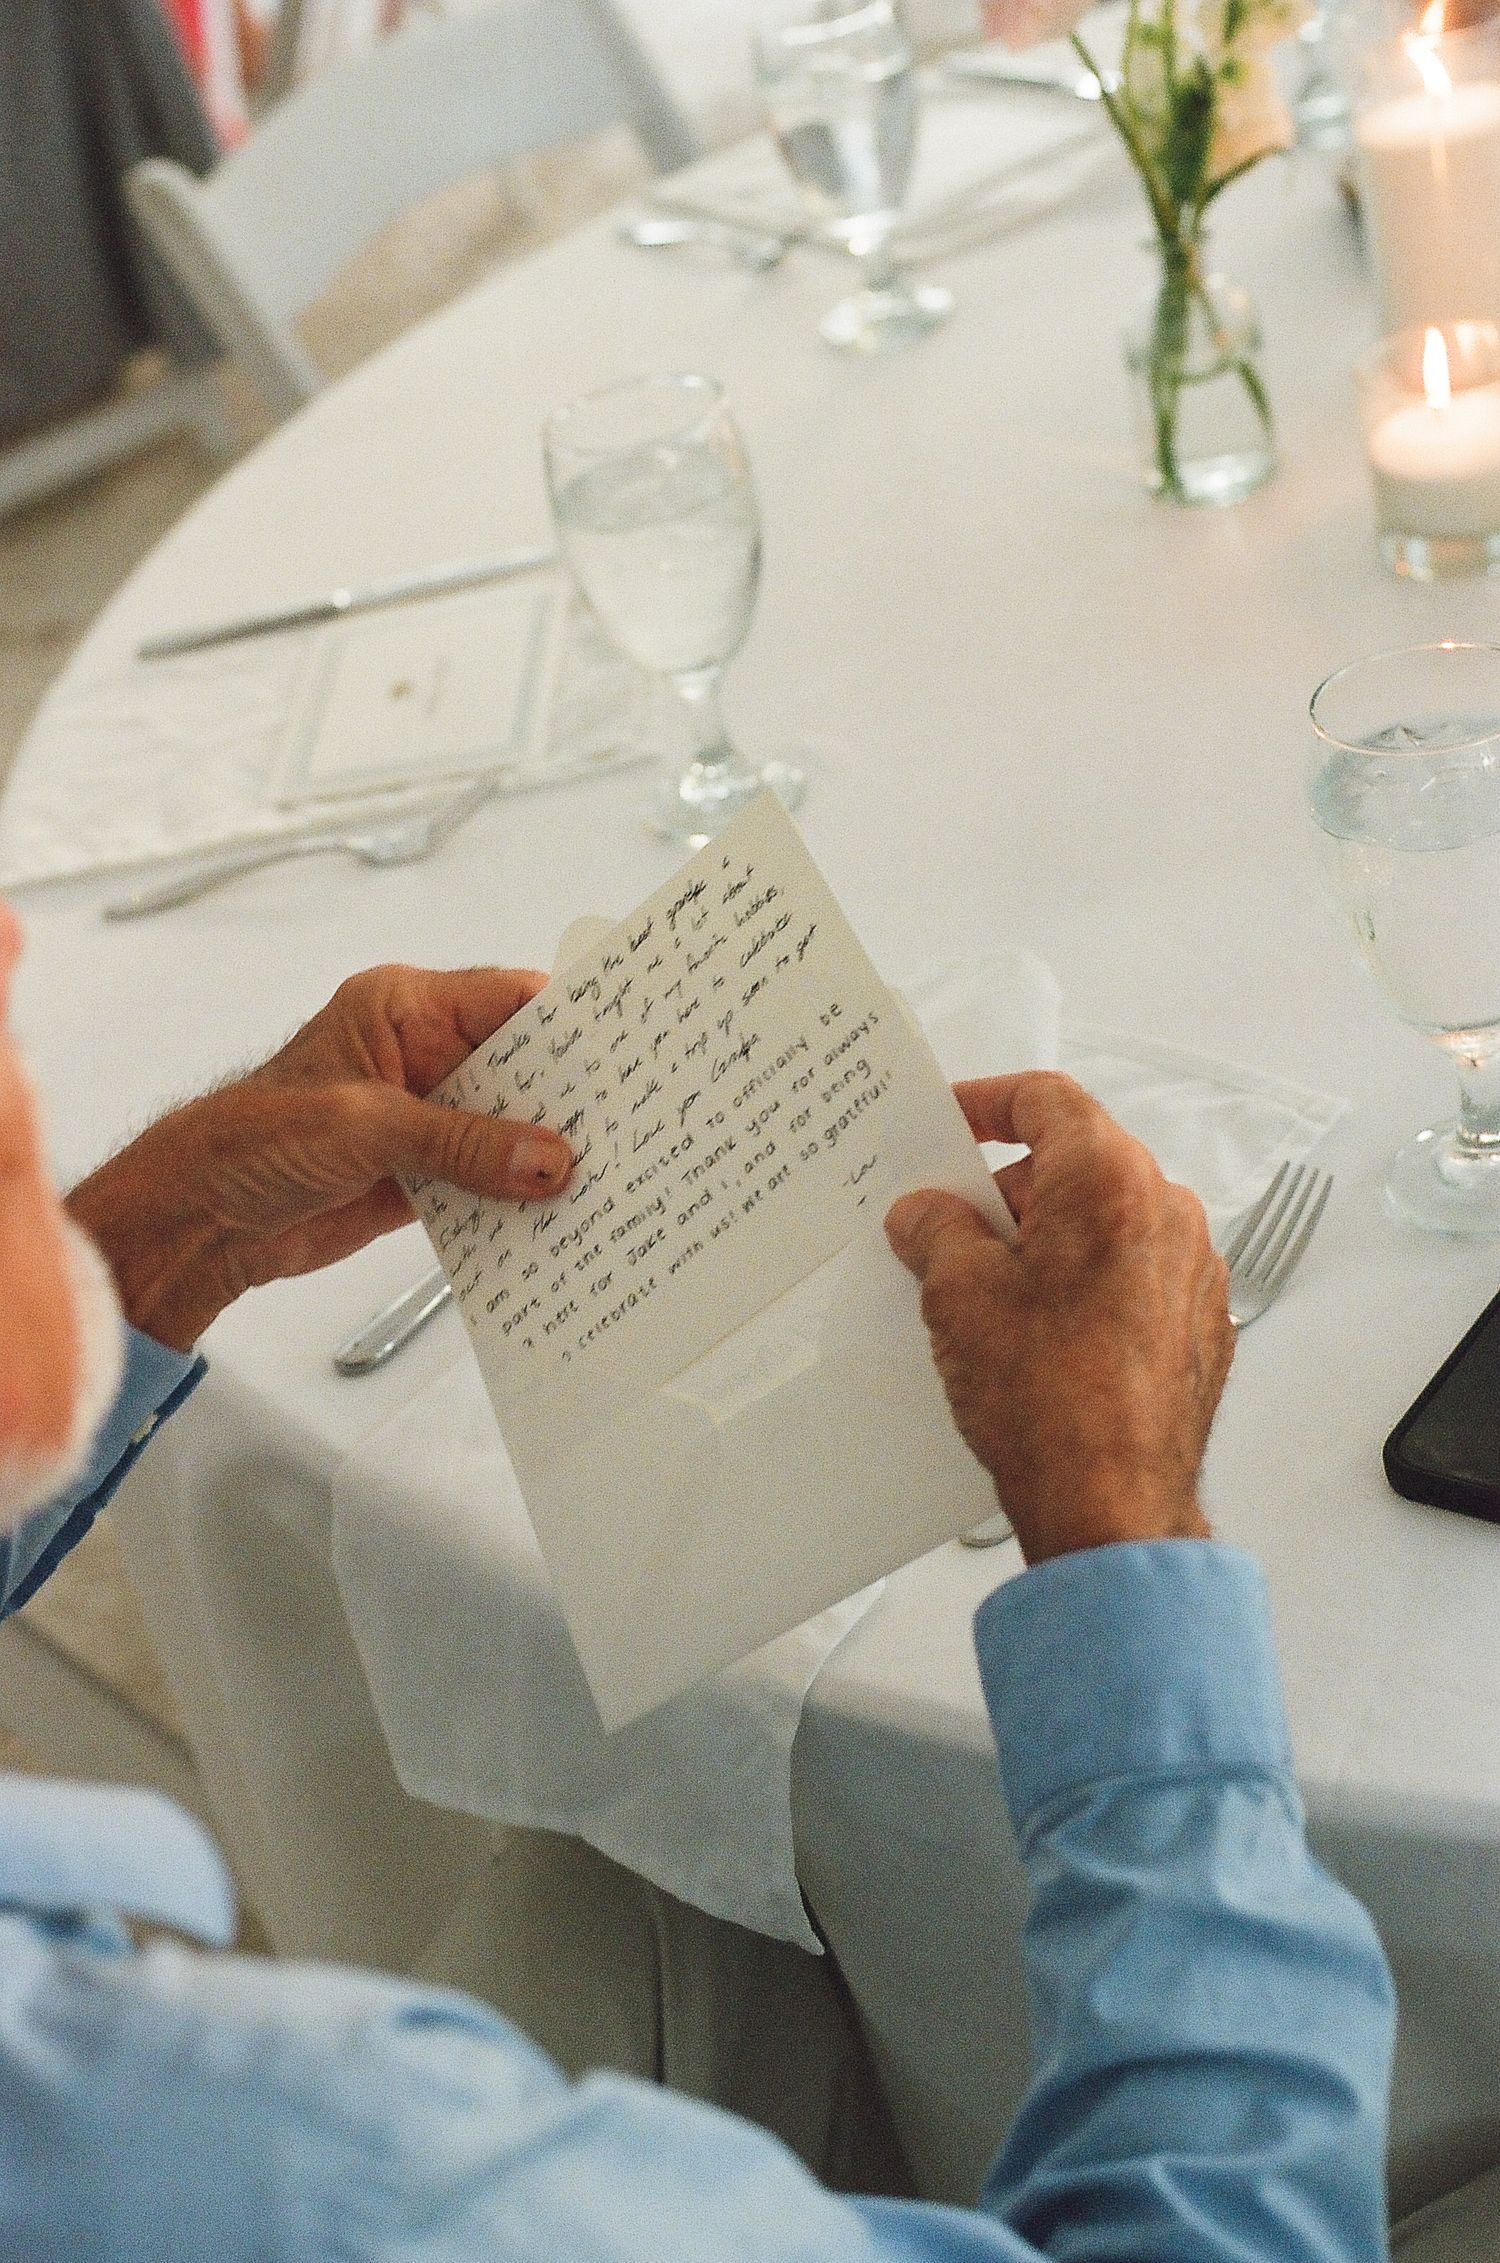 Thanks for being the best grandpa I
ask for, You've taught me a lot about
me to one of my favorite hobbies,
happy to have you here to celebrate
to make a trip up soon to get
out on the water! Love you Grandpa
I am so beyond excited to officially be
part of the family! Thank you for always
here for Jake and I, and for being
celebrate with us! We are so grateful!